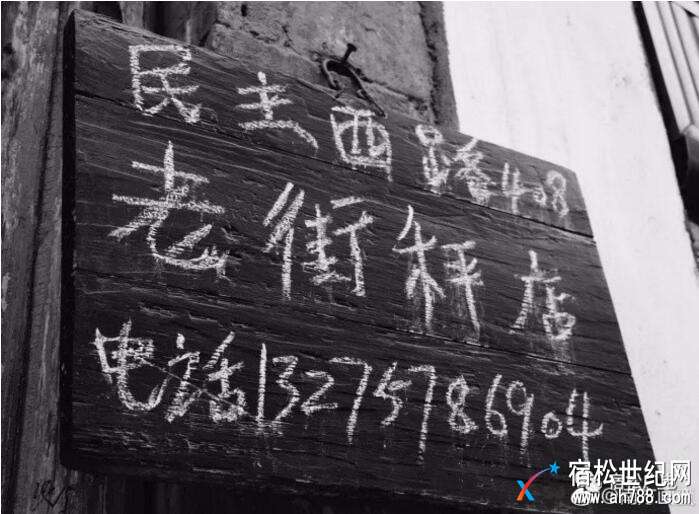 民主西路408
老街秤店
电话13275786904
宿松世纪网
www.ah788.com